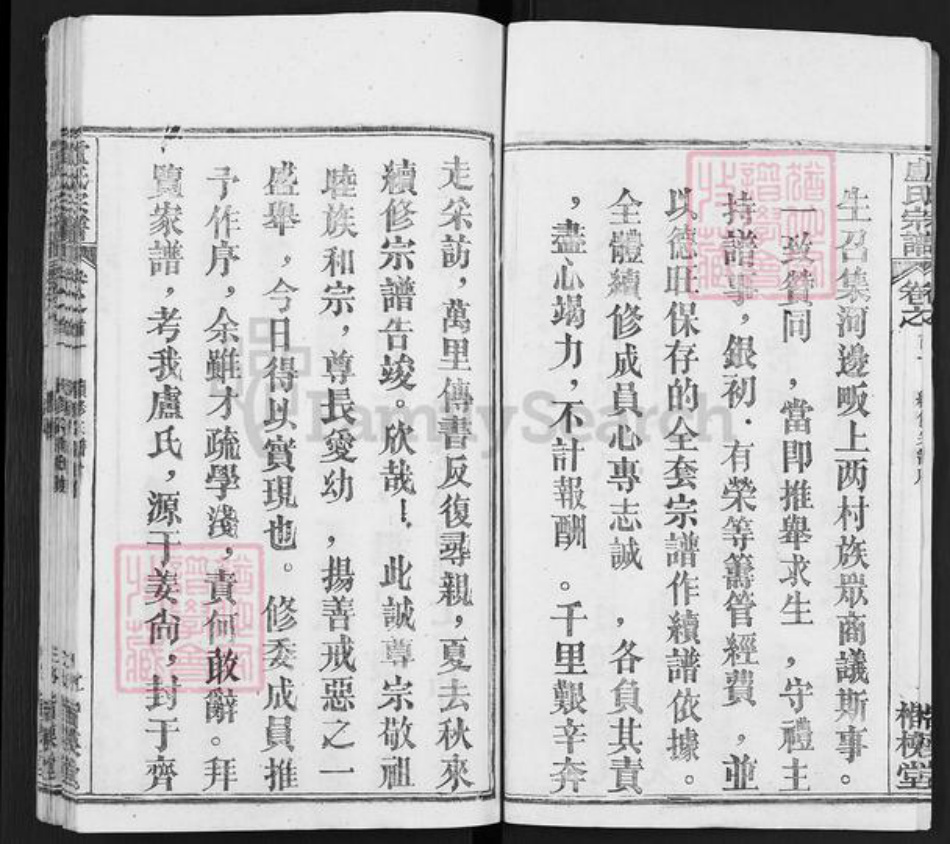 盧氏宗譜 卷之
生召集河邊畈上两村族眾商議斯事。
一致贊同，當即推舉求生，守禮主
持譜事，銀初．有榮等籌管經費，並
以德旺保存的全套宗譜作續譜依據。
全體續修成員心專志誠，各負其責
，盡心竭力，不計報酬。千里艱辛奔
走采訪，萬里傳書反復尋親，夏去秋來
續修宗譜告竣。欣哉！此誠尊宗敬祖
睦族和宗，尊長愛幼，揚善戒惡之一
盛舉，今日得以實現也。修委成員推
予作序，余雖才疏學淺，責何敢辭。拜
覽家譜，考我盧氏，源于姜尙，封于齊
FamilySearch